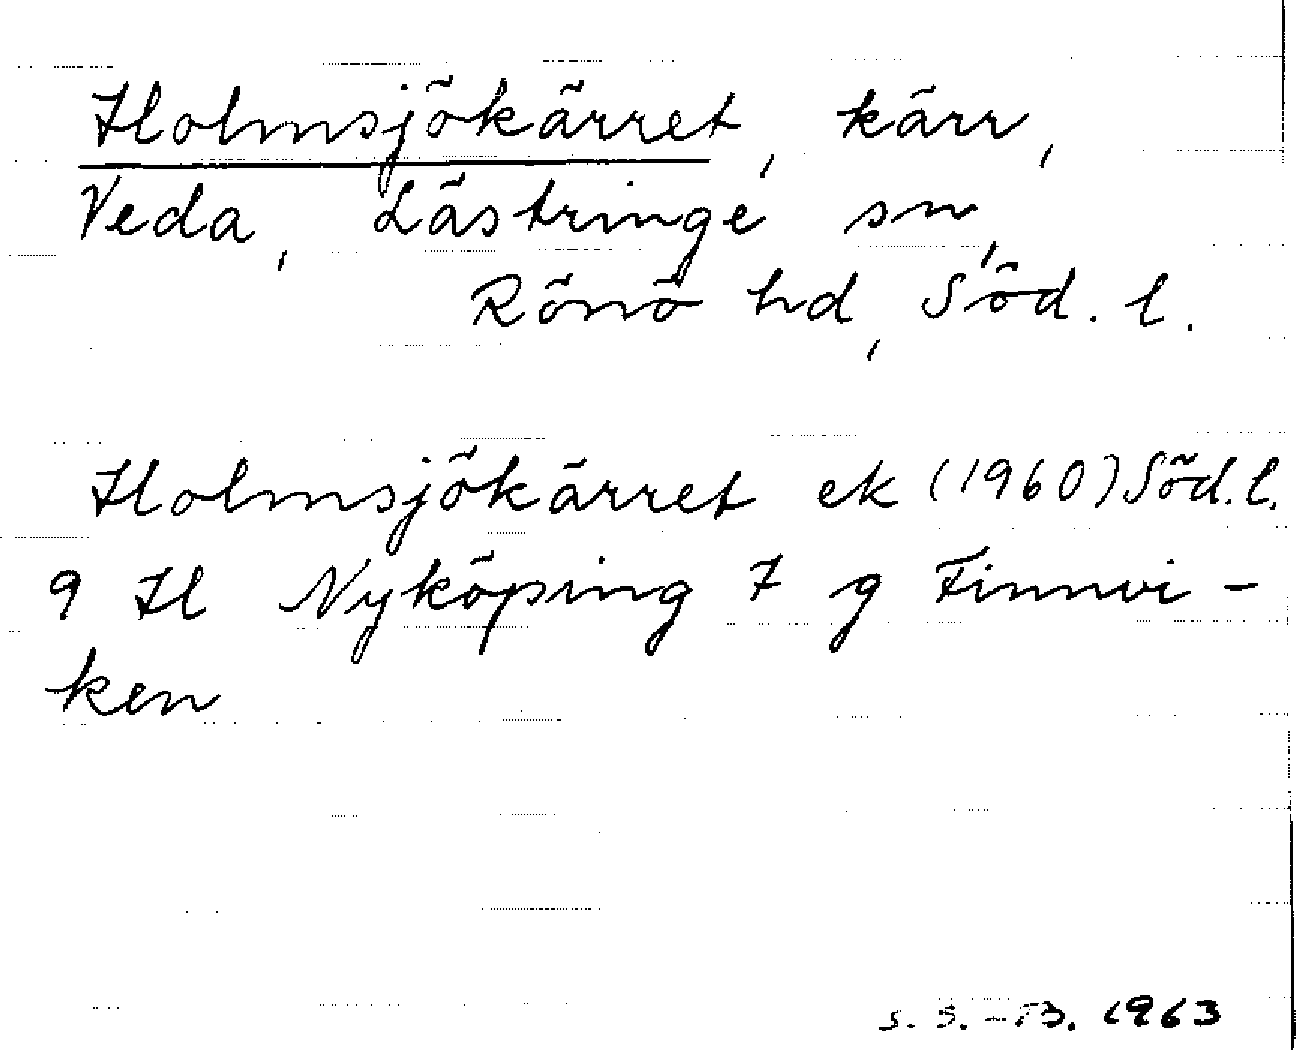 Holmsjökärret, kärr,
Veda, Lästringe sn,
Rönö hd, Söd. l.
Holmsjökärret ek (1960) Söd. l.
9 H Nyköping 7 g Finnvi-
ken
S. B. 1963